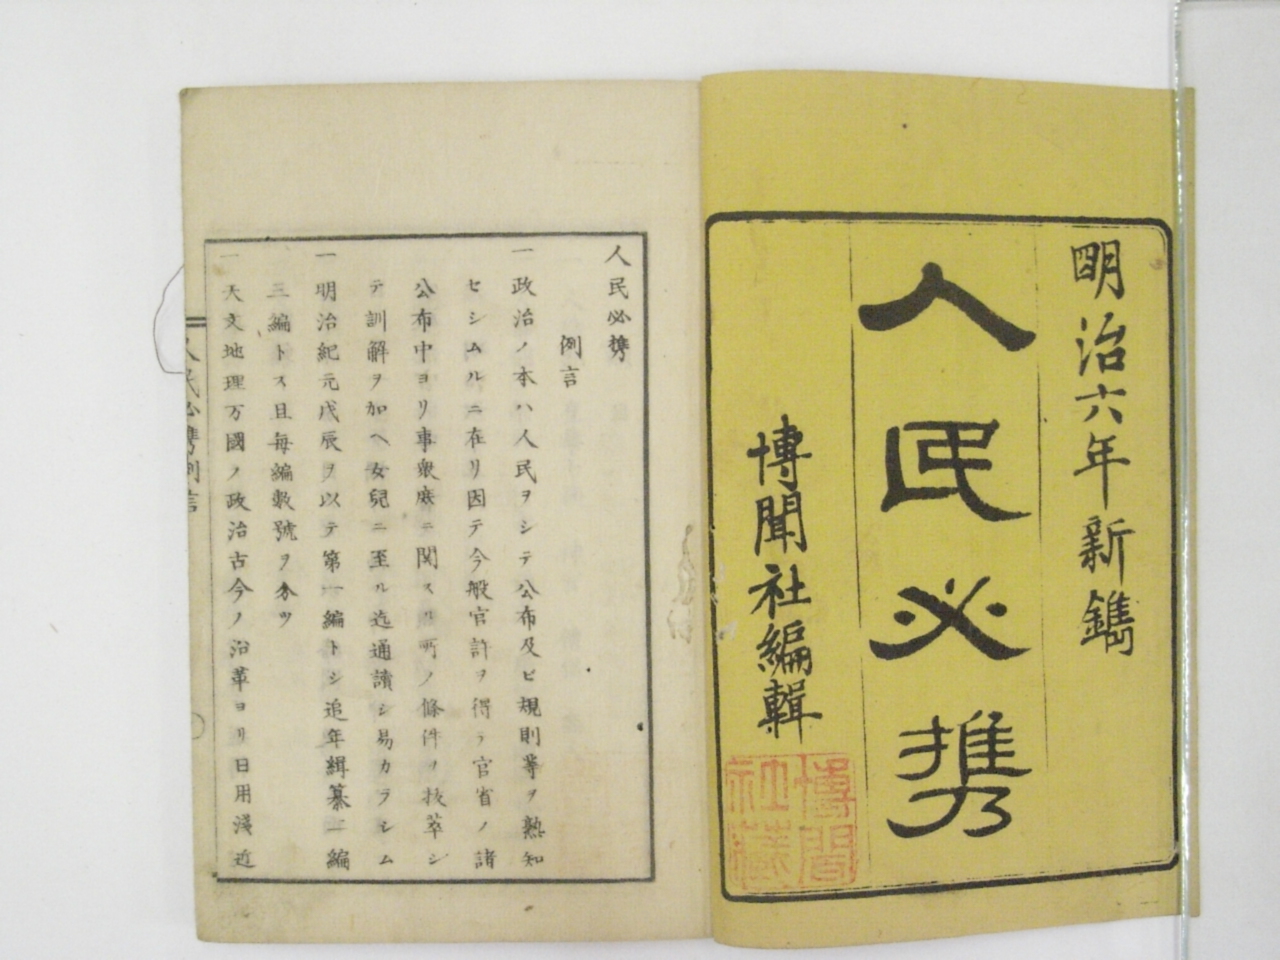 明治六年新鐫
人民必携
博聞社編輯
博聞社蔵
人民必携
例言
一政治ノ本ハ人民ヲシテ公布及ビ規則等ヲ熟知
セシムルニ在リ因テ今般官許ヲ得テ官省ノ諸
公布中ヨリ事衆庶ニ関スル所ノ條件ヲ抜萃シ
テ訓解ヲ加ヘ女兒ニ至ル迄通讀シ易カラシム
一明治紀元戊辰ヲ以テ第一編トシ追年緝纂二編
三編トス且毎編數號ヲ分ツ
一天文地理万國ノ政治古今ノ沿革ヨリ日用淺近
人民必携例言